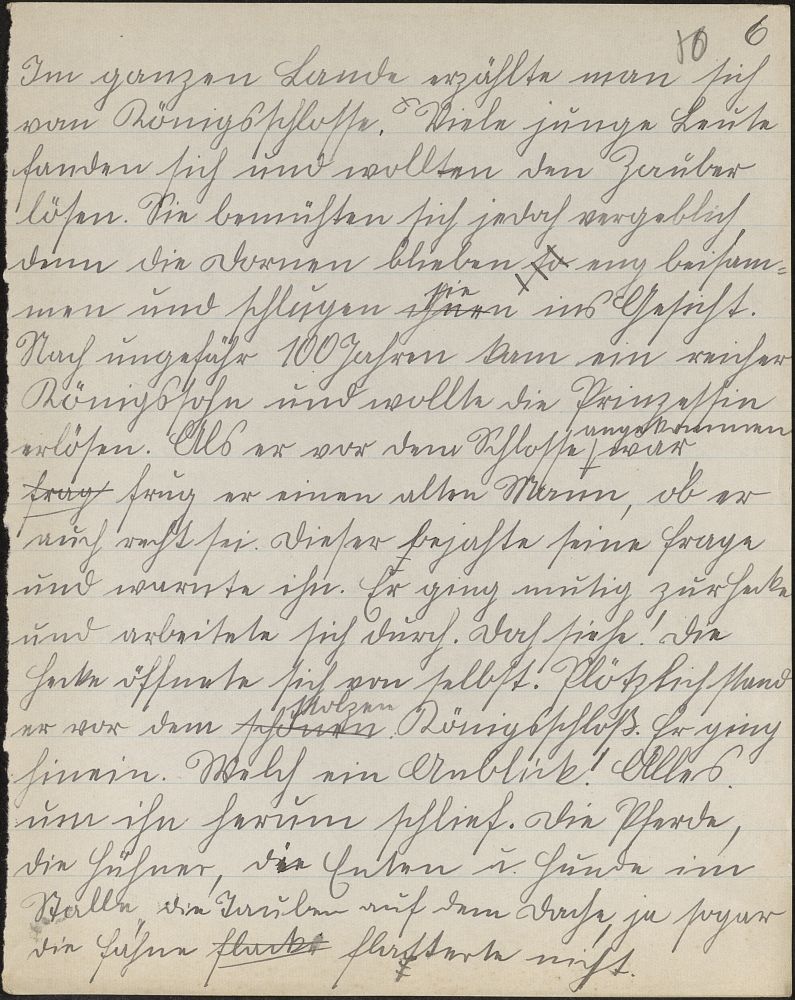 10 6
Im ganzen Lande erzählte man sich
vom Königsschlosse. Viele junge Leute
fanden sich und wollten den Zauber
lösen. Sie bemühten sich jedoch vergeblich,
denn die Dornen blieben so eng beisam-
men und schlugen ihnen sie ins Gesicht.
Nach ungefähr 100 Jahren kam ein reicher
Königssohn und wollte die Prinzessin
erlösen. Als er vor dem Schlosse angekommen war
frag frug er einen alten Mann, ob er
auch recht sei. Dieser bejahte seine Frage
und warnte ihn. Er ging mutig zur Hecke
und arbeitete sich durch. Doch siehe! Die
Hecke öffnete sich von selbst. Plötzlich stand
er vor dem schönen stolzen Königsschloß. Er ging
hinein. Welch ein Anblick! Alles
um ihn herum schlief. Die Pferde,
die Hühner, die Enten u. Hunde im
Stalle, die Tauben auf dem Dache, ja sogar
die Fahne flacke flatterte nicht.